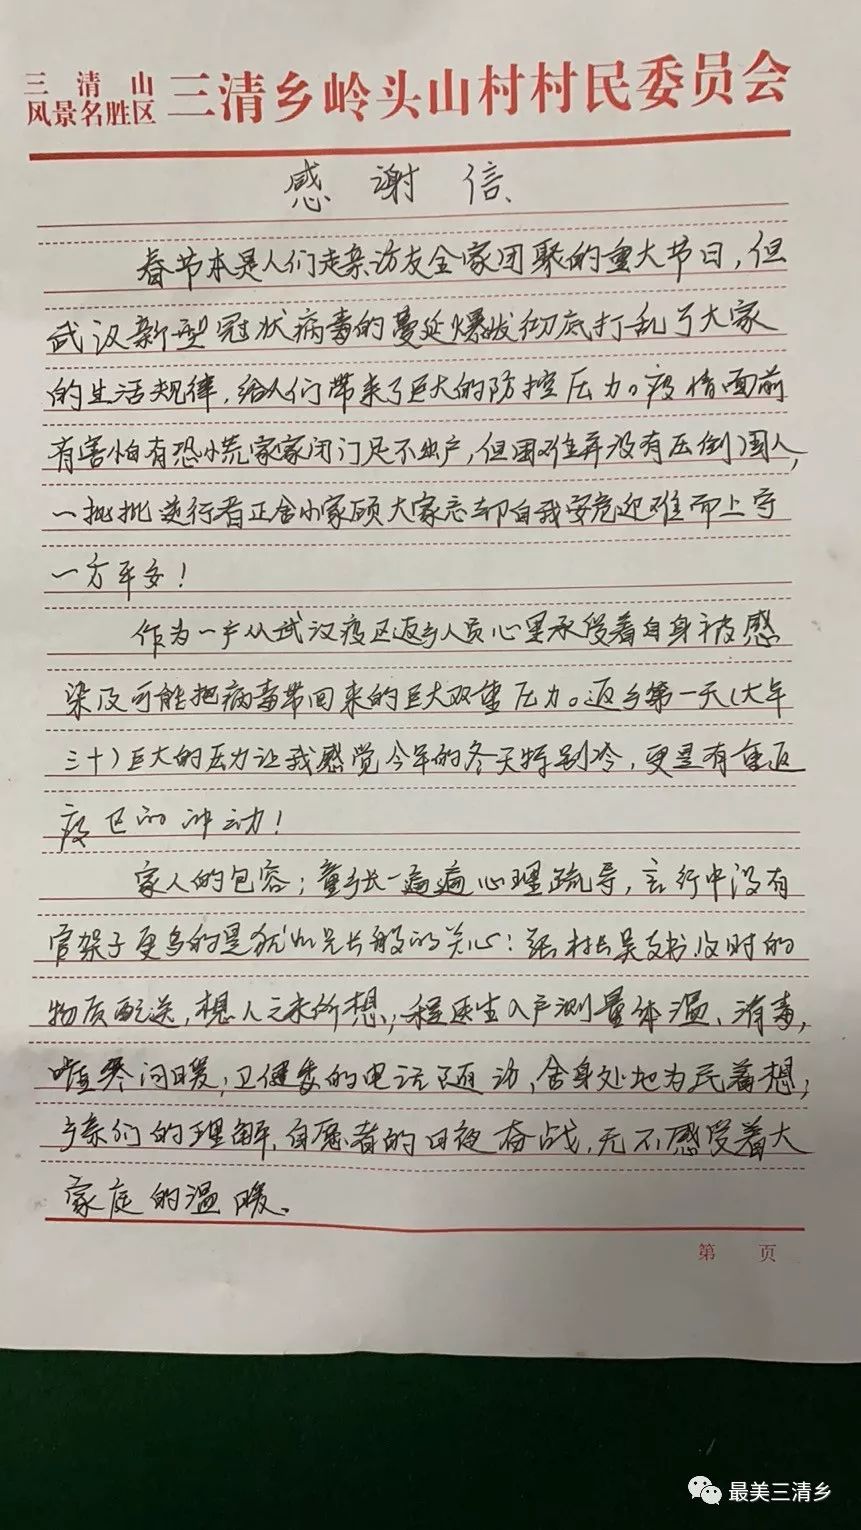 三清山
风景名胜区 三清乡岭头山村村民委员会
感谢信
春节本是人们走亲访友全家团聚的重大节日，但
武汉新型冠状病毒的蔓延爆发彻底打乱了大家
的生活规律，给人们带来了巨大的防控压力。疫情面前
有害怕有恐慌家家闭门足不出户，但困难并没有压倒国人，
一批批逆行者正舍小家顾大家忘却自我安危迎难而上守
一方平安！
作为一户从武汉疫区返乡人员心里承受着自身被感
染及可能把病毒带回来的巨大双重压力。返乡第一天（大年
三十）巨大的压力让我感觉今年的冬天特别冷，更是有重返
疫区的冲动！
家人的包容；童乡长一遍遍心理疏导，言行中没有
官架子更多的是犹如兄长般的关心；张村长吴支书及时的
物质配送，想人之未所想；程医生入户测量体温、消毒，
嘘寒问暖；卫健委的电话随访，舍身处地为民着想；
乡亲们的理解，自愿者的日夜奋战，无不感受着大
家庭的温暖。
第 页
最美三清乡